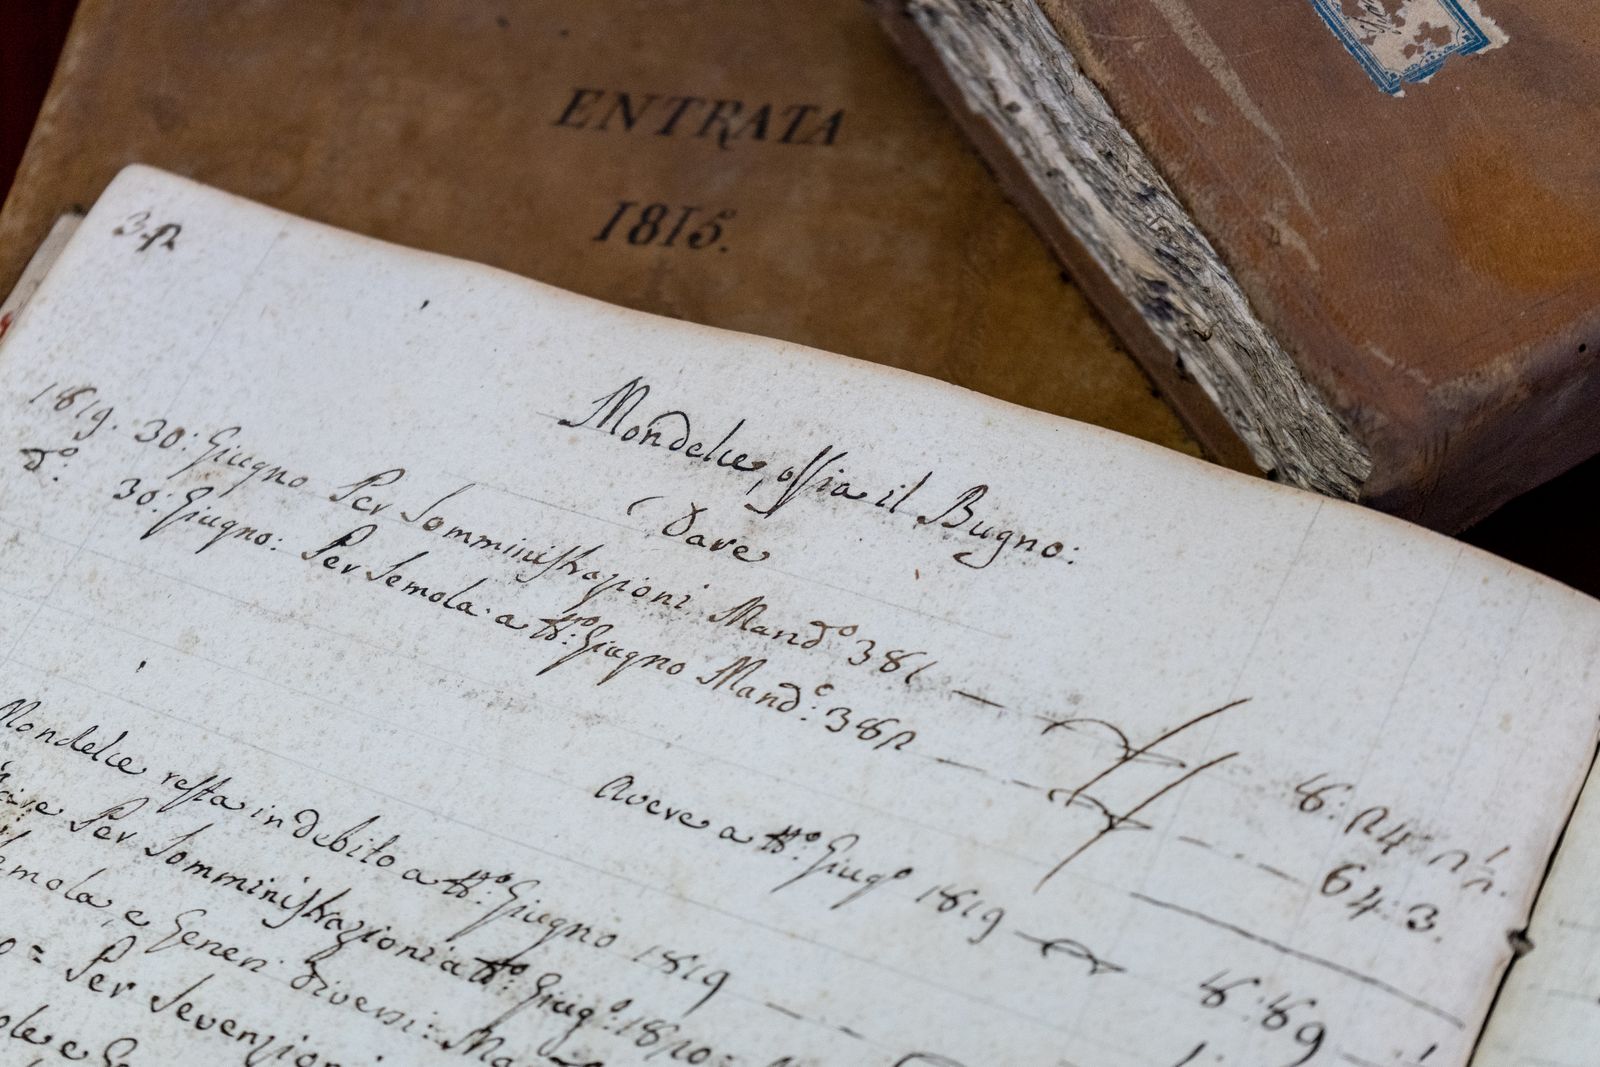 ENTRATA
1815.
32
Mondelce, ossia il Bugno:
Dare
1819. 30: Giugno Per Somministrazioni Mand.º 381
d.º 30: Giugno: Per Semola a tt.º Giugno Mand.º: 382
64: 3.
Avere a tt.º Giug.º 1819
Mondelce resta in debito a tt.º Giugno 1819
Per Somministrazioni a tt.º Giug.º: 1820=
e Generi diversi:
= Per Sovenzioni